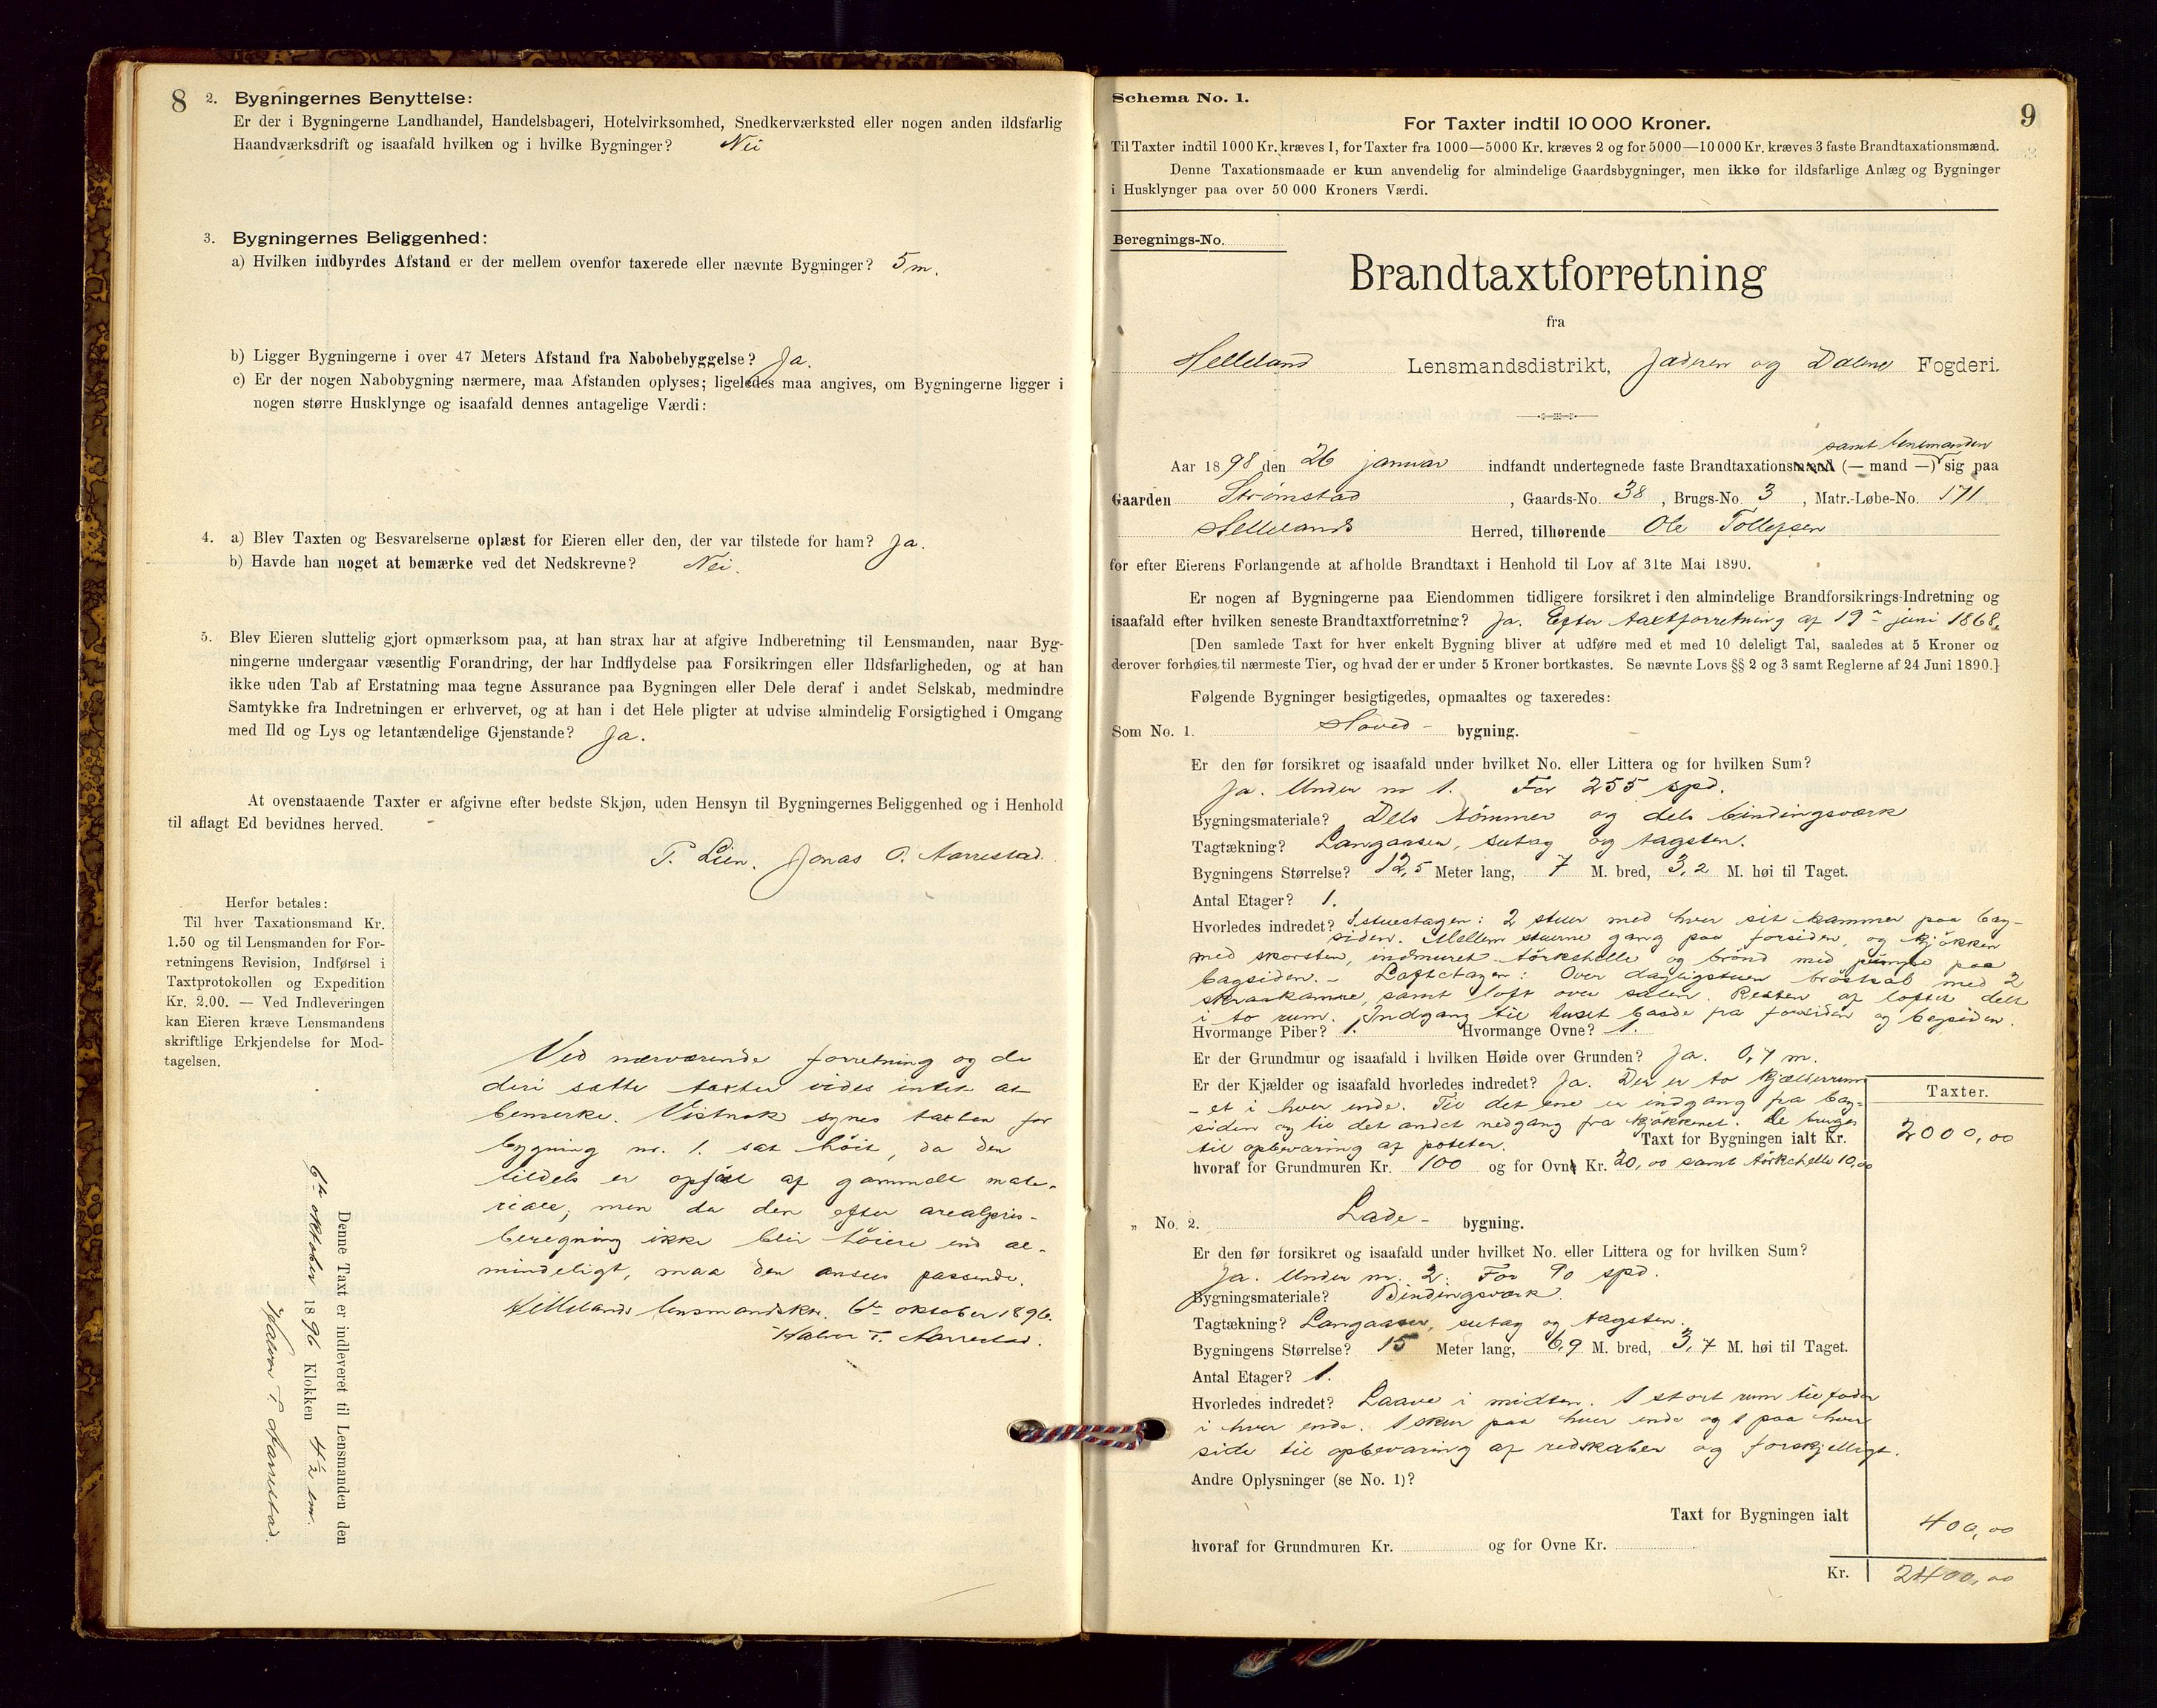 8
2. Bygningernes Benyttelse:
Er der i Bygningerne Landhandel, Handelsbageri, Hotelvirksomhed, Snedkerværksted eller nogen anden ildsfarlig
Haandværksdrift og isaafald hvilken og i hvilke Bygninger? Nei
3. Bygningernes Beliggenhed:
a) Hvilken indbyrdes Afstand er der mellem ovenfor taxerede eller nævnte Bygninger? 5 m.
b) Ligger Bygningerne i over 47 Meters Afstand fra Nabobebyggelse? Ja.
c) Er der nogen Nabobygning nærmere, maa Afstanden oplyses; ligeledes maa angives, om Bygningerne ligger i
nogen større Husklynge og isaafald dennes antagelige Værdi:
4. a) Blev Taxten og Besvarelserne oplæst for Eieren eller den, der var tilstede for ham? Ja.
b) Havde han noget at bemærke ved det Nedskrevne? Nei.
5. Blev Eieren sluttelig gjort opmærksom paa, at han strax har at afgive Indberetning til Lensmanden, naar Byg-
ningerne undergaar væsentlig Forandring, der har Indflydelse paa Forsikringen eller Ildsfarligheden, og at han
ikke uden Tab af Erstatning maa tegne Assurance paa Bygningen eller Dele deraf i andet Selskab, medmindre
Samtykke fra Indretningen er erhvervet, og at han i det Hele pligter at udvise almindelig Forsigtighed i Omgang
med Ild og Lys og letantændelige Gjenstande? Ja.
At ovenstaaende Taxter er afgivne efter bedste Skjøn, uden Hensyn til Bygningernes Beliggenhed og i Henhold
til aflagt Ed bevidnes herved.
T. Lien. Jonas O. Aarrestad.
Herfor betales:
Til hver Taxationsmand Kr.
1.50 og til Lensmanden for For-
retningens Revision, Indførsel i
Taxtprotokollen og Expedition
Kr. 2.00. — Ved Indleveringen
kan Eieren kræve Lensmandens
skriftlige Erkjendelse for Mod-
tagelsen.
Ved nærværende forretning og de
deri satte taxter vides intet at
bemerke. Vistnok synes taxten for
bygning nr. 1. sat høit, da den
tildels er opført af gammelt mate-
riale; men da den efter arealpris-
beregning ikke blir høiere end al-
mindeligt, maa den ansees passende.
Hellelands lensmandskr. 6te oktober 1896.
Halvor T. Aarrestad.
Denne Taxt er indleveret til Lensmanden den
6te oktober 1896 Klokken 4½ em.
Halvor T. Aarrestad.
Schema No. 1.
9
For Taxter indtil 10 000 Kroner.
Til Taxter indtil 1000 Kr. kræves 1, for Taxter fra 1000—5000 Kr. kræves 2 og for 5000—10 000 Kr. kræves 3 faste Brandtaxationsmænd.
Denne Taxationsmaade er kun anvendelig for almindelige Gaardsbygninger, men ikke for ildsfarlige Anlæg og Bygninger
i Husklynger paa over 50 000 Kroners Værdi.
Beregnings-No.
Brandtaxtforretning
fra
Helleland Lensmandsdistrikt, Jæderen og Dalene Fogderi.
samt lensmanden
Aar 1898 den 26 januar indfandt undertegnede faste Brandtaxationsmænd (— mand —) sig paa
Gaarden Strømstad, Gaards-No. 38, Brugs-No. 3, Matr.-Løbe-No. 171
Hellelands Herred, tilhørende Ole Tollefsen
for efter Eierens Forlangende at afholde Brandtaxt i Henhold til Lov af 31te Mai 1890.
Er nogen af Bygningerne paa Eiendommen tidligere forsikret i den almindelige Brandforsikrings-Indretning og
isaafald efter hvilken seneste Brandtaxtforretning? Ja. Efter taxtforretning af 19de juni 1868.
[Den samlede Taxt for hver enkelt Bygning bliver at udføre med et med 10 deleligt Tal, saaledes at 5 Kroner og
derover forhøies til nærmeste Tier, og hvad der er under 5 Kroner bortkastes. Se nævnte Lovs §§ 2 og 3 samt Reglerne af 24 Juni 1890.]
Følgende Bygninger besigtigedes, opmaaltes og taxeredes:
Som No. 1. Hoved- bygning.
Er den før forsikret og isaafald under hvilket No. eller Littera og for hvilken Sum?
Ja. Under no 1. For 255 spd.
Bygningsmateriale? Dels tømmer og dels bindingsværk
Tagtækning? Langaasen, sutag og tagsten.
Bygningens Størrelse? 12,5 Meter lang, 7 M. bred, 3,2 M. høi til Taget.
Antal Etager? 1.
Hvorledes indredet? I stueetagen: 2 stuer med hver sit kammer paa bag-
siden. Mellem stuerne gang paa forsiden, og kjøkken
med skorsten, indmuret tørkehelle og brønd med pumpe paa
bagsiden. - Loftetagen: Over dagligstuen brøstsal med 2
skraakamre, samt loft over salen. Resten af loftet delt
i to rum. Indgang til huset baade fra forsiden og bagsiden.
Hvormange Piber? 1. Hvormange Ovne? 1.
Er der Grundmur og isaafald i hvilken Høide over Grunden? Ja. 0,7 m.
Er der Kjælder og isaafald hvorledes indredet? Ja. Der er to kjælderrum
- et i hver ende. Til det ene er indgang fra bag-
siden og til det andet nedgang fra kjøkkenet. De bruges
til opbevaring af poteter.
Taxter.
Taxt for Bygningen ialt Kr. 2000,00
hvoraf for Grundmuren Kr. 100 og for Ovne Kr. 20,00 samt tørkehelle 10,00
„ No. 2. Lade- bygning.
Er den før forsikret og isaafald under hvilket No. eller Littera og for hvilken Sum?
Ja. Under nr. 2. For 90 spd.
Bygningsmateriale? Bindingsværk.
Tagtækning? Langaasen, sutag og tagsten.
Bygningens Størrelse? 15 Meter lang, 6,9 M. bred, 3,7 M. høi til Taget.
Antal Etager? 1.
Hvorledes indredet? Laave i midten. 1 stort rum til foder
i hver ende. 1 skur paa hver ende og 1 paa hver
side til opbevaring af redskaber og forskjelligt.
Andre Oplysninger (se No. 1)?
Taxt for Bygningen ialt 400,00
hvoraf for Grundmuren Kr. og for Ovne Kr.
Kr. 2400,00